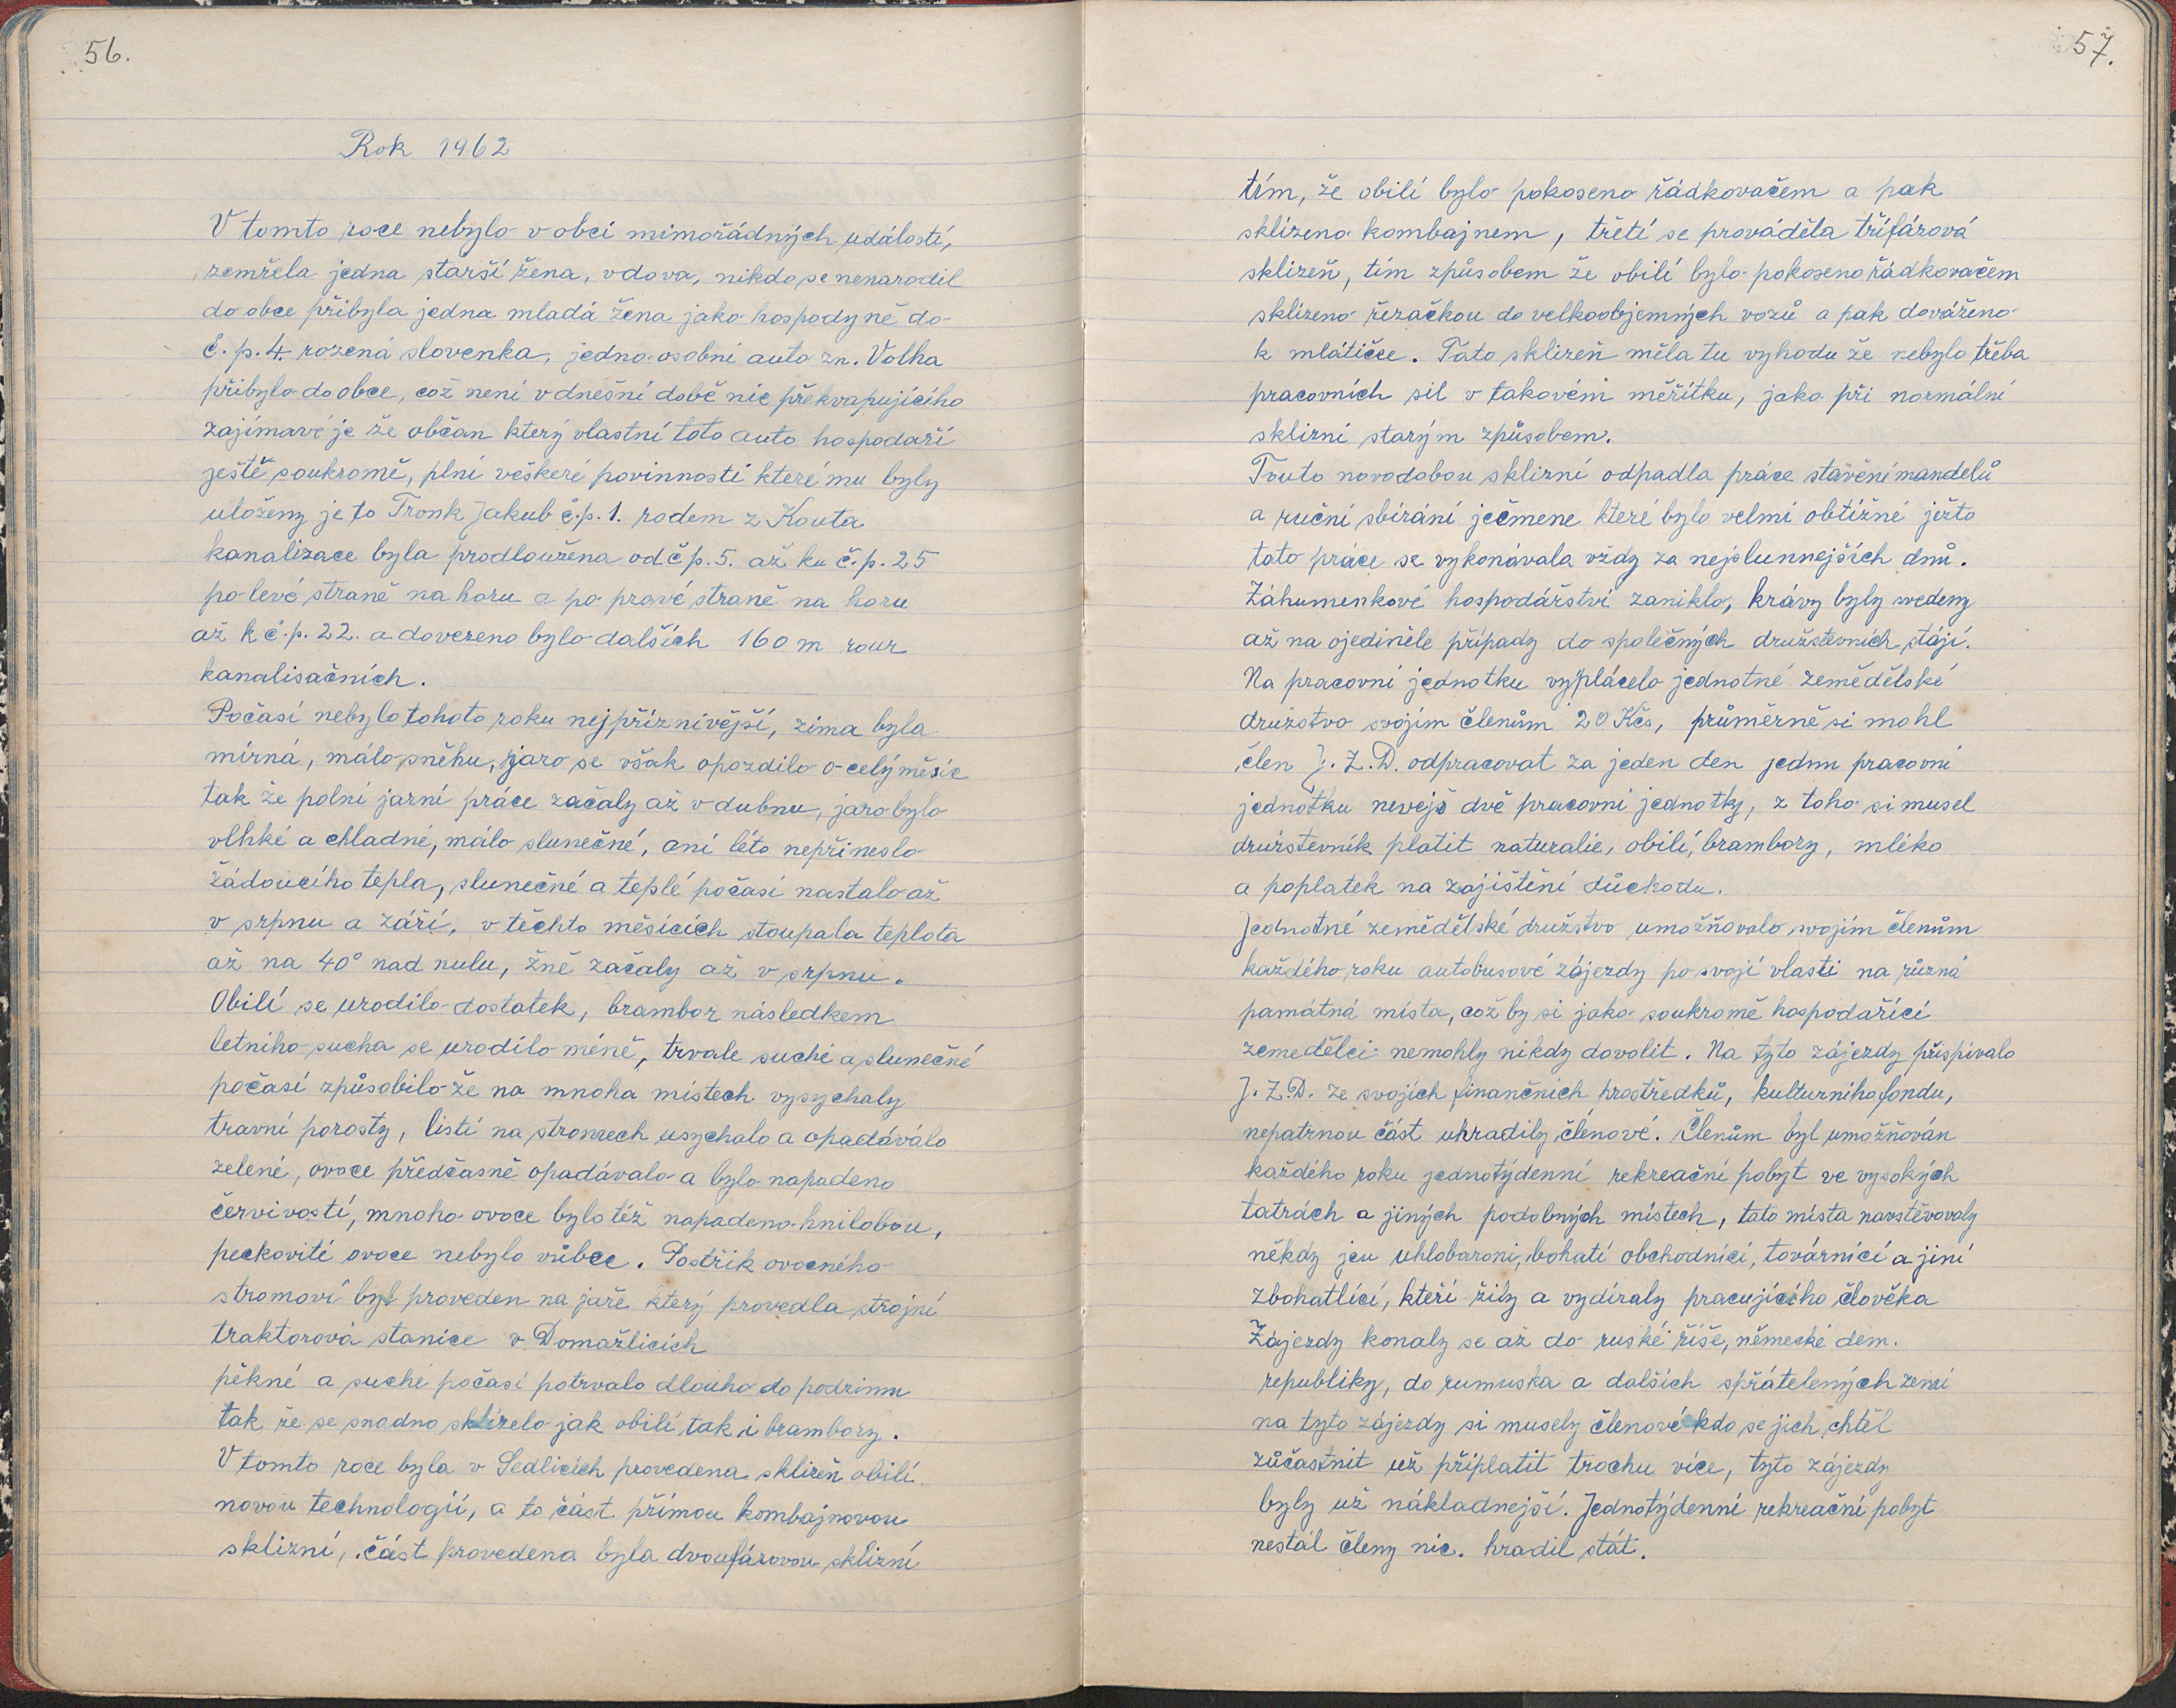 56.
Rok 1962
V tomto roce nebylo v obci mimořádných událostí,
zemřela jedna starší žena, vdova, nikdo se nenarodil
do obce přibyla jedna mladá žena jako hospodyně do
č.p.4. rozená slovenka, jedno osobní auto zn. Volha
přibylo do obce, což není v dnešní době nic překvapujícího
zajímavé je že občan který vlastní toto auto hospodaří
ještě soukromě, plní veškeré povinnosti které mu byly
uloženy je to Tronk Jakub č.p. 1. rodem z Kouta
kanalizace byla prodloužena od č p. 5. až ku č.p. 25
po levé straně na horu a po pravé straně na horu
až k č.p. 22. a dovezeno bylo dalších 160 m rour
kanalisačních.
Počasí nebylo tohoto roku nejpříznivější, zima byla
mírná, málo sněhu, jaro se však opozdilo o celý měsíc
tak že polní jarní práce začaly až v dubnu, jaro bylo
vlhké a chladné, málo slunečné, ani léto nepřineslo
žádoucího tepla, slunečné a teplé počasí nastalo až
v srpnu a září, v těchto měsících stoupala teplota
až na 40° nad nulu, žně začaly až v srpnu.
Obilí se urodilo dostatek, brambor následkem
letního sucha se urodilo méně, trvale suché a slunečné
počasí způsobilo že na mnoha místech vysychaly
travní porosty, listí na stromech usychalo a opadávalo
zelené, ovoce předčasně opadávalo a bylo napadeno
červivostí, mnoho ovoce bylo též napadeno hnilobou,
peckovité ovoce nebylo vůbec. Postřik ovocného
stromoví byl proveden na jaře který provedla strojní
traktorová stanice v Domažlicích
pěkné a suché počasí potrvalo dlouho do podzimu
tak že se snadno sklízelo jak obilí tak i brambory.
V tomto roce byla v Sedlicích provedena sklizeň obilí
novou technologií, a to část přímou kombajnovou
sklizní, část provedena byla dvoufázovou sklizní
57.
tím, že obilí bylo pokoseno řádkovačem a pak
sklizeno kombajnem, třetí se prováděla třífázová
sklizeň, tím způsobem že obilí bylo pokoseno řádkovačem
sklizeno řezačkou do velkoobjemných vozů a pak dováženo
k mlátičce. Tato sklizeň měla tu vyhodu že nebylo třeba
pracovních sil v takovém měřítku, jako při normální
sklizni starým způsobem.
Touto novodobou sklizní odpadla práce stavění mandelů
a ruční sbírání ječmene které bylo velmi obtížné ježto
tato práce se vykonávala vždy za nejslunnejších dnů.
Záhumenkové hospodářství zaniklo, krávy byly svedeny
až na ojediněle případy do společných družstevních stájí.
Na pracovní jednotku vyplácelo jednotné zemědělské
družstvo svojím členům 20 Kčs, průměrně si mohl
člen J.Z.D. odpracovat za jeden den jednu pracovní
jednotku nevejš dvě pracovní jednotky, z toho si musel
družstevník platit naturalie, obilí, brambory, mléko
a poplatek na zajištění důchodu.
Jednotné zemědělské družstvo umožňovalo svojím členům
každého roku autobusové zájezdy po svojí vlasti na různá
památná místa, což by si jako soukromě hospodařící
zemedělci nemohly nikdy dovolit. Na tyto zájezdy přispívalo
J.Z.D. ze svojích finančních prostředků, kulturního fondu,
nepatrnou část uhradily členové. Členům byl umožňován
každého roku jednotýdenní rekreační pobyt ve vysokých
tatrách a jiných podobných místech, tato místa navštěvovaly
někdy jen uhlobaroni, bohatí obchodníci, továrníci a jiní
zbohatlíci, kteří žily a vydíraly pracujícího člověka
Zájezdy konaly se až do ruské říše, německé dem.
republiky, do rumuska a dalších spřátelených zemí
na tyto zájezdy si musely členové kdo se jich chtěl
zůčastnit už připlatit trochu více, tyto zájezdy
byly už nákladnejší. Jednotýdenní rekreační pobyt
nestál členy nic. hradil stát.